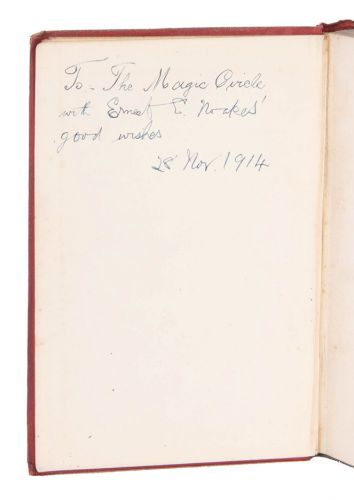 To - The Magic Circle
with Ernest E. Noakes'
good wishes
28 Nov. 1914